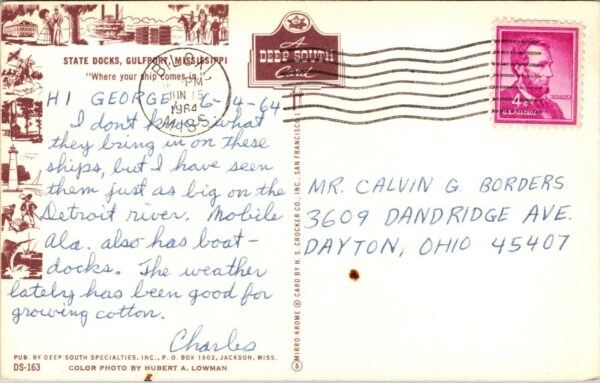 STATE DOCKS, GULFPORT, MISSISSIPPI
"Where your ship comes in."
A
DEEP SOUTH
Card
BILOXI
PM
JUN 15
1964
MISS.
4¢
LINCOLN
U.S. POSTAGE
HI GEORGE, 6-14-64
I don't know what
they bring in on these
ships, but I have seen
them just as big on the
Detroit river. Mobile
Ala. also has boat-
docks. The weather
lately has been good for
growing cotton.
Charles
MR. CALVIN G. BORDERS
3609 DANDRIDGE AVE.
DAYTON, OHIO 45407
MIRRO-KROME ® CARD BY H. S. CROCKER CO., INC., SAN FRANCISCO
PUB. BY DEEP SOUTH SPECIALTIES, INC., P. O. BOX 1802, JACKSON, MISS.
DS-163
COLOR PHOTO BY HUBERT A. LOWMAN